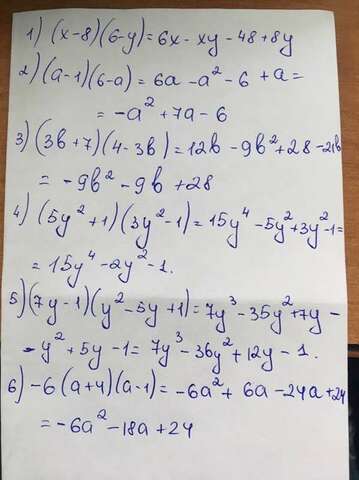 1) (x-8)(6-y)=6x-xy-48+8y
2) (a-1)(6-a)=6a-a²-6+a=
=-a²+7a-6
3) (3b+7)(4-3b)=12b-9b²+28-21b
=-9b²-9b+28
4) (5y²+1)(3y²-1)=15y⁴-5y²+3y²-1=
=15y⁴-2y²-1.
5) (7y-1)(y²-5y+1)=7y³-35y²+7y-
-y²+5y-1=7y³-36y²+12y-1.
6) -6(a+4)(a-1)=-6a²+6a-24a+24
=-6a²-18a+24